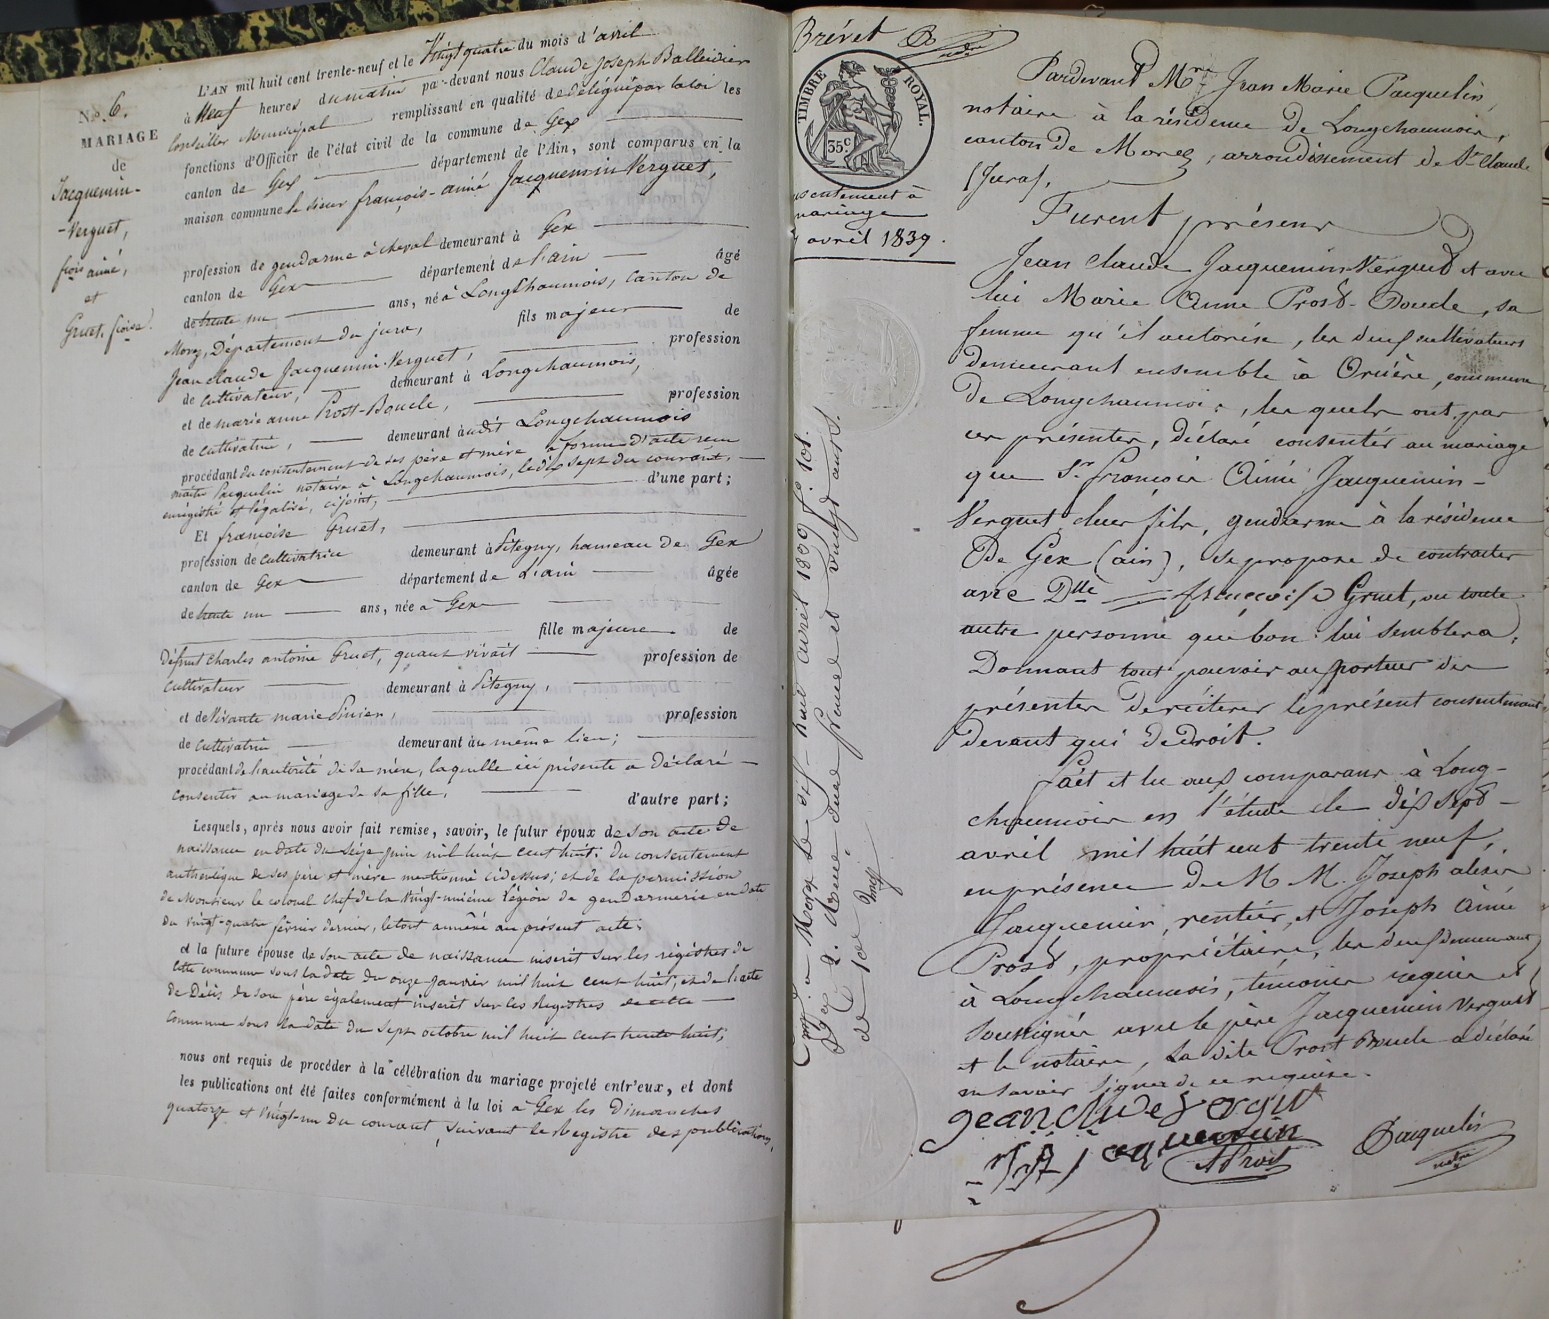 No. 6.
MARIAGE
de
Jacquemin-
-Verguet,
fois aimé,
et
Gruet, foise.
L'AN mil huit cent trente-neuf et le Vingt quatre du mois d'avril
à Neuf heures du matin par-devant nous Claude Joseph Balleidier
Conseiller Municipal remplissant en qualité de délégué par la loi les
fonctions d'Officier de l'état civil de la commune de Gex
canton de Gex département de l'Ain, sont comparus en la
maison commune le sieur françois-aimé Jacquemin Verguet,
profession de gendarme à cheval demeurant à Gex
canton de Gex département de l'ain âgé
de trente un ans, né à Longchaumois, Canton de
Morez, Département du jura, fils majeur de
Jean claude Jacquemin-Verguet, profession
de Cultivateur, demeurant à Longchaumois,
et de marie anne Prost-Boucle, profession
de cultivatrice, demeurant audit Longchaumois
procédant du consentement de ses père et mère à forme d'acte reçu
maitre Pacquelin notaire à Longchaumois, le dix sept du courant,
enregistré et légalisé, cijoint, d'une part;
Et françoise Gruet,
profession de Cultivatrice demeurant à Pitegny, hameau de Gex
canton de Gex département de L'ain âgée
de trente un ans, née à Gex
fille majeure de
Défunt Charles antoine Gruet, quant vivait profession de
Cultivateur demeurant à Pitegny,
et de Vivante marie Pinier, profession
de Cultivatrice demeurant au même lieu;
procédant de l'autorité de sa mère, laquelle ici présente a Déclaré
Consentir au mariage de sa fille, d'autre part;
Lesquels, après nous avoir fait remise, savoir, le futur époux de son acte de
naissance en date du Seize Juin mil huit cent huit. Du consentement
authentique de ses père et mère mentionné cidessus; et de la permission
de Monsieur le colonel chef de la Vingt-unième Légion de gendarmerie en date
du Vingt-quatre février dernier, letout annéxé au présent acte;
et la future épouse de son acte de naissance inscrit sur les régistres de
cette commune sous la date du onze Janvier mil huit cent huit, et de l'acte
de Décès de son père également inscrit sur les Régistres de cette
Commune sous la date du sept octobre mil huit cent trente huit;
nous ont requis de procéder à la célébration du mariage projeté entr'eux, et dont
les publications ont été faites conformément à la loi à Gex les Dimanches
quatorze et Vingt-un du courant, suivant le Registre des publications,
Brévet
TIMBRE ROYAL.
35c.
mariage
avril 1839.
Pardevant Mre Jean Marie Pacquelin,
notaire à la résidence de Longchaumois,
canton de Morez, arrondissement de St Claude
(Jura),
Furent présens
Jean Claude Jacquemin-Verguet et avec
lui Marie Anne Prost-Boucle, sa
femme qu'il autorise, les deux cultivateurs
demeurant ensemble à Orcière, commune
de Longchaumois, les quels ont, par
ces présentes, déclaré consentir au mariage
que Sr François Aimé Jacquemin-
Verguet, leur fils, gendarme à la résidence
de Gex (ain), se propose de contracter
avec Dlle françoise Gruet, ou toute
autre personne que bon lui semblera,
Donnant tout pouvoir au porteur des
présentes de réitérer le présent consentement
devant qui de droit.
fait et lu aux comparans à Long-
chaumois en l'étude le dix sept
avril mil huit cent trente neuf,
en présence de M M. Joseph alexis
Jacquemin, rentier, et Joseph Aimé
Prost, propriétaire, les deux demeurant
à Longchaumois, témoins requis et
soussignés avec le père Jacquemin Verguet
et le notaire, la dite Prost Boucle a déclaré
ne savoir signer de ce requise.
jean claude vergut
JA jacquemin
A Prost
Pacquelin
notre